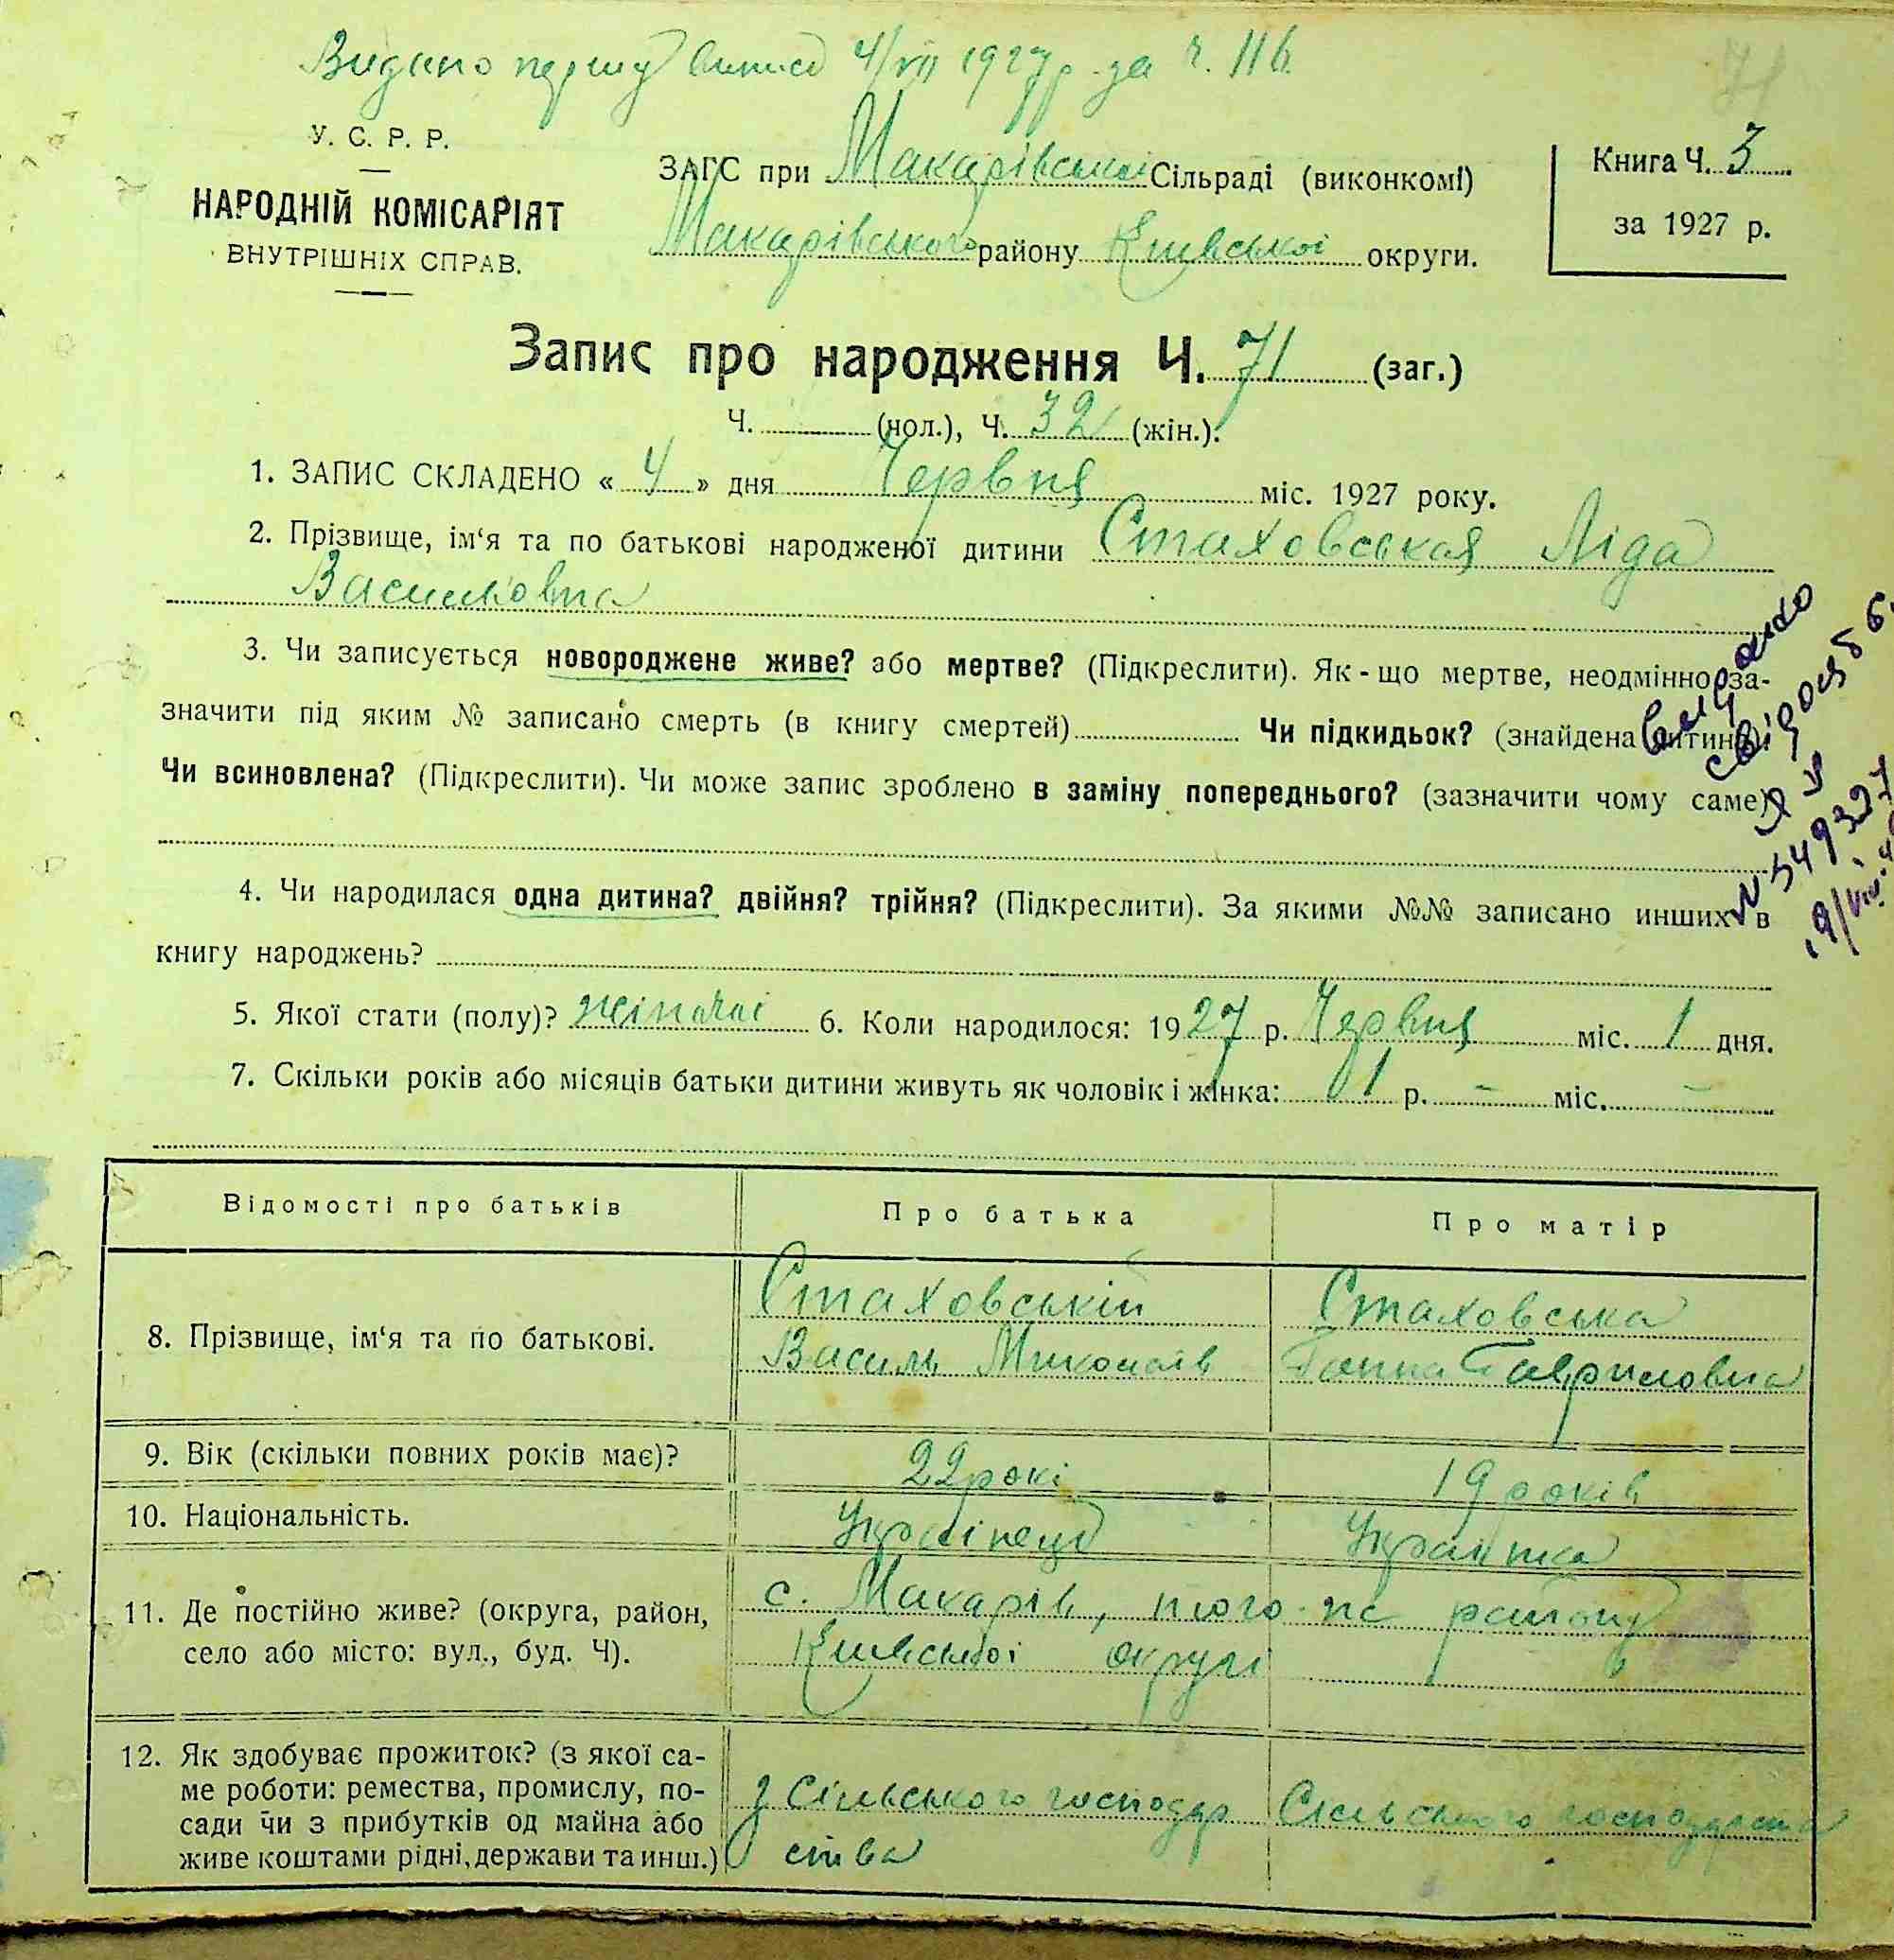 Видано першу виписі 4/VII 1927 р. за ч. 116.
71
У. С. Р. Р.
НАРОДНІЙ КОМІСАРІЯТ
ВНУТРІШНІХ СПРАВ.
ЗАГС при Макарівській Сільраді (виконкомі)
Макарівського району Київської округи.
Книга Ч. 3
за 1927 р.
Запис про народження Ч. 71 (заг.)
Ч. (чол.), Ч. 32 (жін.).
1. ЗАПИС СКЛАДЕНО « 4 » дня Червня міс. 1927 року.
2. Прізвище, ім‘я та по батькові народженої дитини Стаховськая Ліда
Васильовна
3. Чи записується новороджене живе? або мертве? (Підкреслити). Як-що мертве, неодмінно за-
значити під яким № записано смерть (в книгу смертей) Чи підкидьок? (знайдена дитина).
Чи всиновлена? (Підкреслити). Чи може запис зроблено в заміну попереднього? (зазначити чому саме)
4. Чи народилася одна дитина? двійня? трійня? (Підкреслити). За якими №№ записано инших в
книгу народжень?
5. Якої стати (полу)? жіночої 6. Коли народилося: 1927 р. Червня міс. 1 дня.
7. Скільки років або місяців батьки дитини живуть як чоловік і жінка: 1 р. – міс. –
видано
N 549327
Відомості про батьків Про батька Про матір
8. Прізвище, ім‘я та по батькові.
Стаховській Стаховська
Василь Миколаїв Ганна Гавриловна
9. Вік (скільки повних років має)? 22 рокі 19 років
10. Національність. Українець Українка
11. Де постійно живе? (округа, район,
село або місто: вул., буд. Ч).
с. Макарів, того-ж району
Київської округи
12. Як здобуває прожиток? (з якої са-
ме роботи: ремества, промислу, по-
сади чи з прибутків од майна або
живе коштами рідні, держави та инш.)
З Сільського господар Сільського господарства
ства